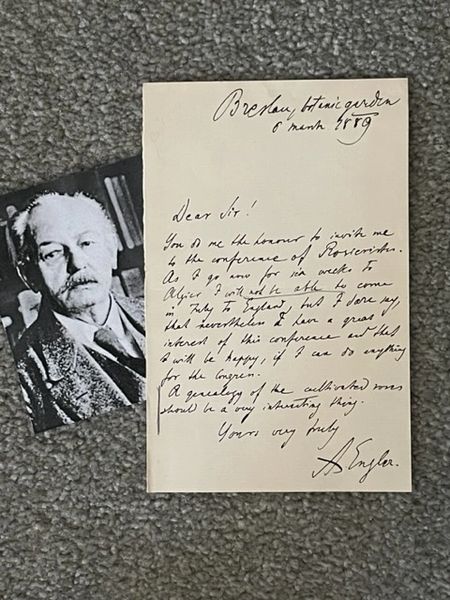 Breslau, botanic garden
6 march 1889
Dear Sir!
You do me the honour to invite me
to the conference of Rosierists.
As I go now for six weeks to
Algier I will not be able to come
in July to England, but I dare say,
that nevertheless I have a great
interest of this conference and that
I will be happy, if I can do anything
for the Congress.
A genealogy of the cultivated roses
should be a very interesting thing.
Yours very truly
A Engler.